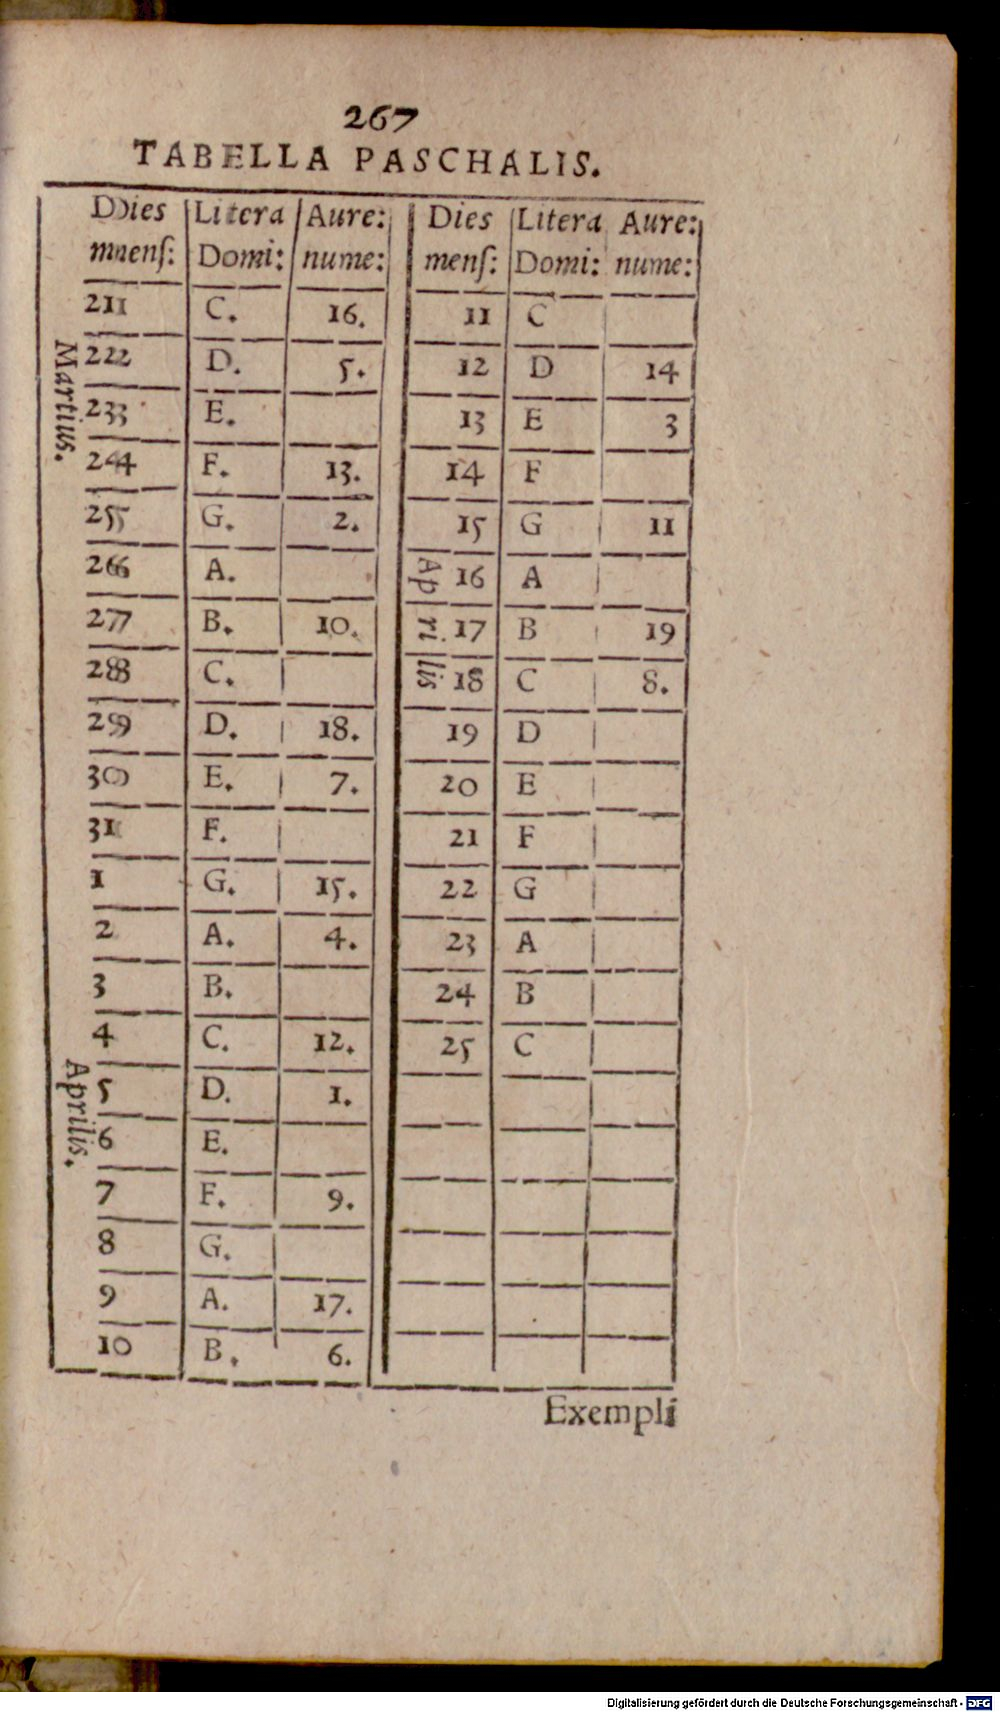 267
TABELLA PASCHALIS.
Dies Litera Aure:
mensſ: Domi: nume:
Martius.
21 C. 16.
22 D. 5.
23 E.
24 F. 13.
25 G. 2.
26 A.
27 B. 10.
28 C.
29 D. 18.
30 E. 7.
31 F.
Aprilis.
1 G. 15.
2 A. 4.
3 B.
4 C. 12.
5 D. 1.
6 E.
7 F. 9.
8 G.
9 A. 17.
10 B. 6.
Dies Litera Aure:
menſ: Domi: nume:
Ap
ri
lis
11 C
12 D 14
13 E 3
14 F
15 G 11
16 A
17 B 19
18 C 8.
19 D
20 E
21 F
22 G
23 A
24 B
25 C
Exempli
Digitalisierung gefördert durch die Deutsche Forschungsgemeinschaft - DFG